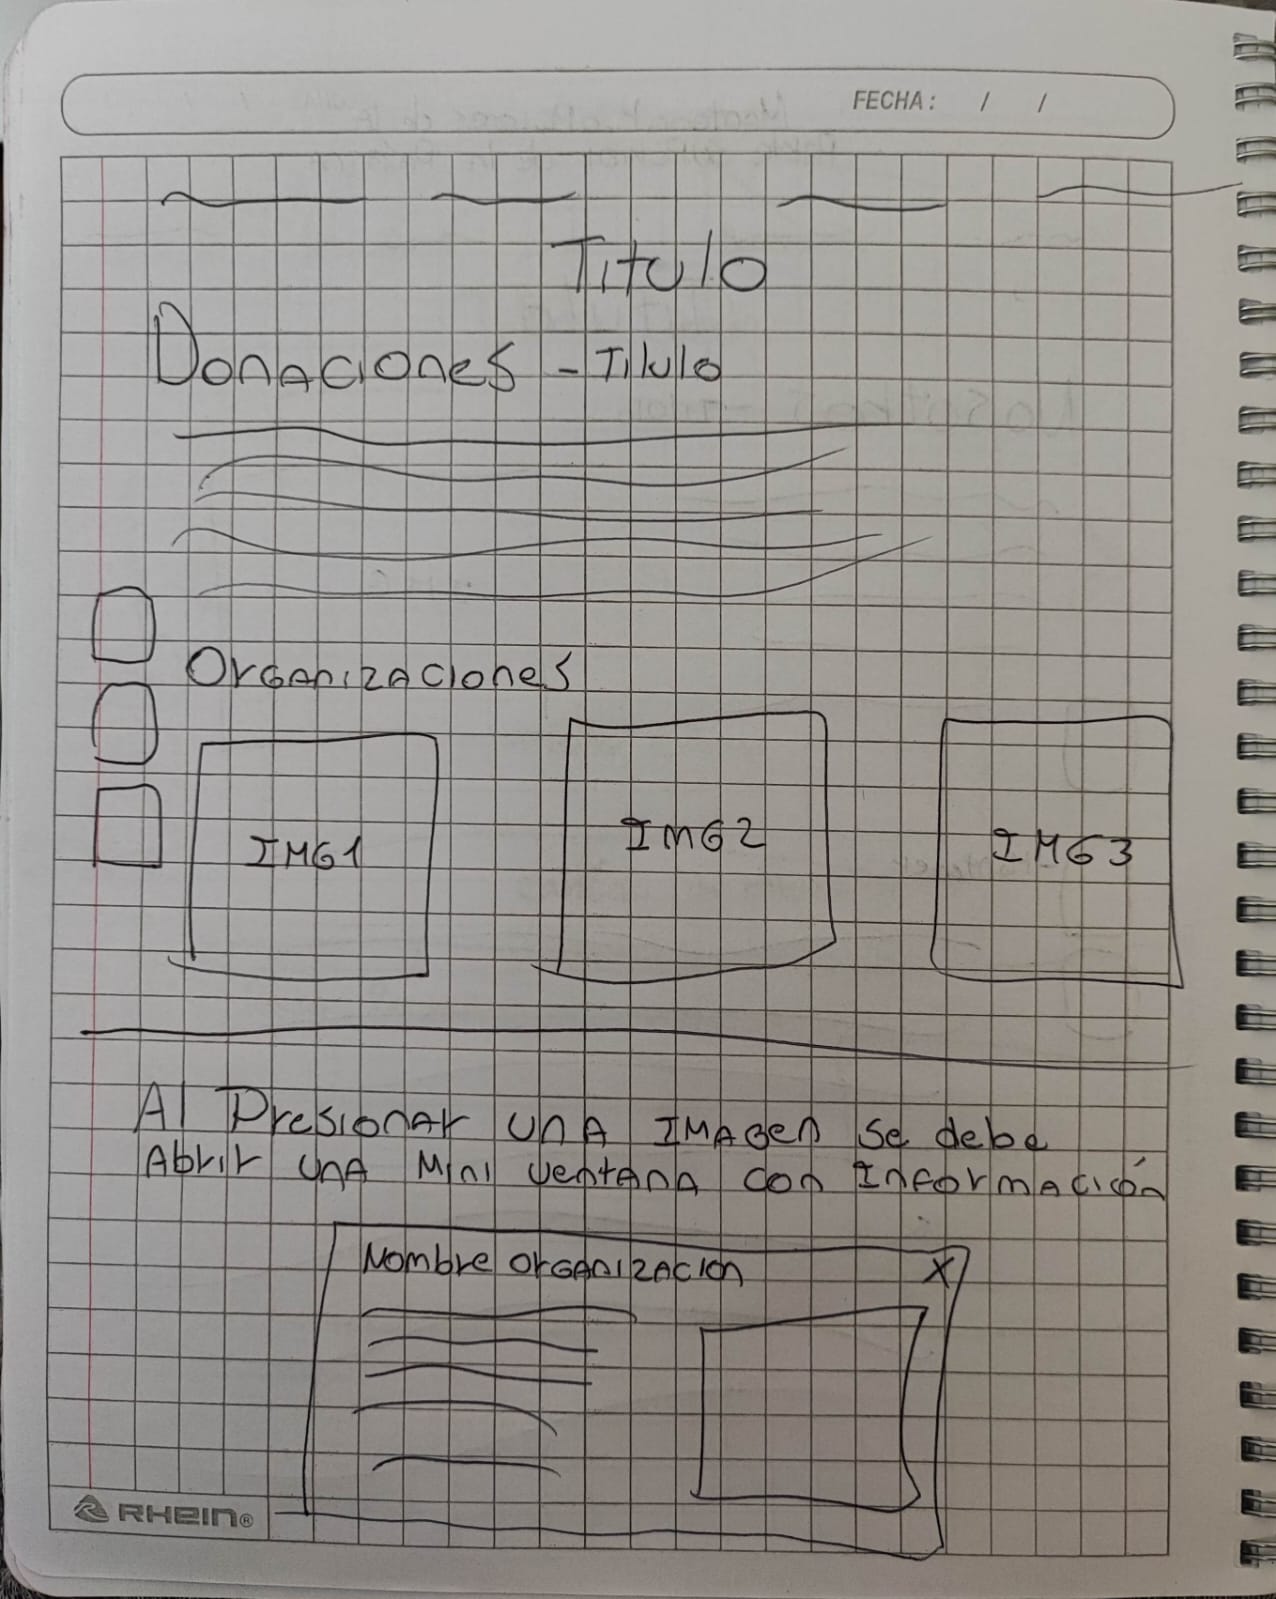 FECHA: / /
Titulo
Donaciones - Titulo
Organizaciones
IMG1 IMG2 IMG3
Al Presionar una Imagen se debe
Abrir una Mini ventana con Información
Nombre organizacion X
RHEIN®